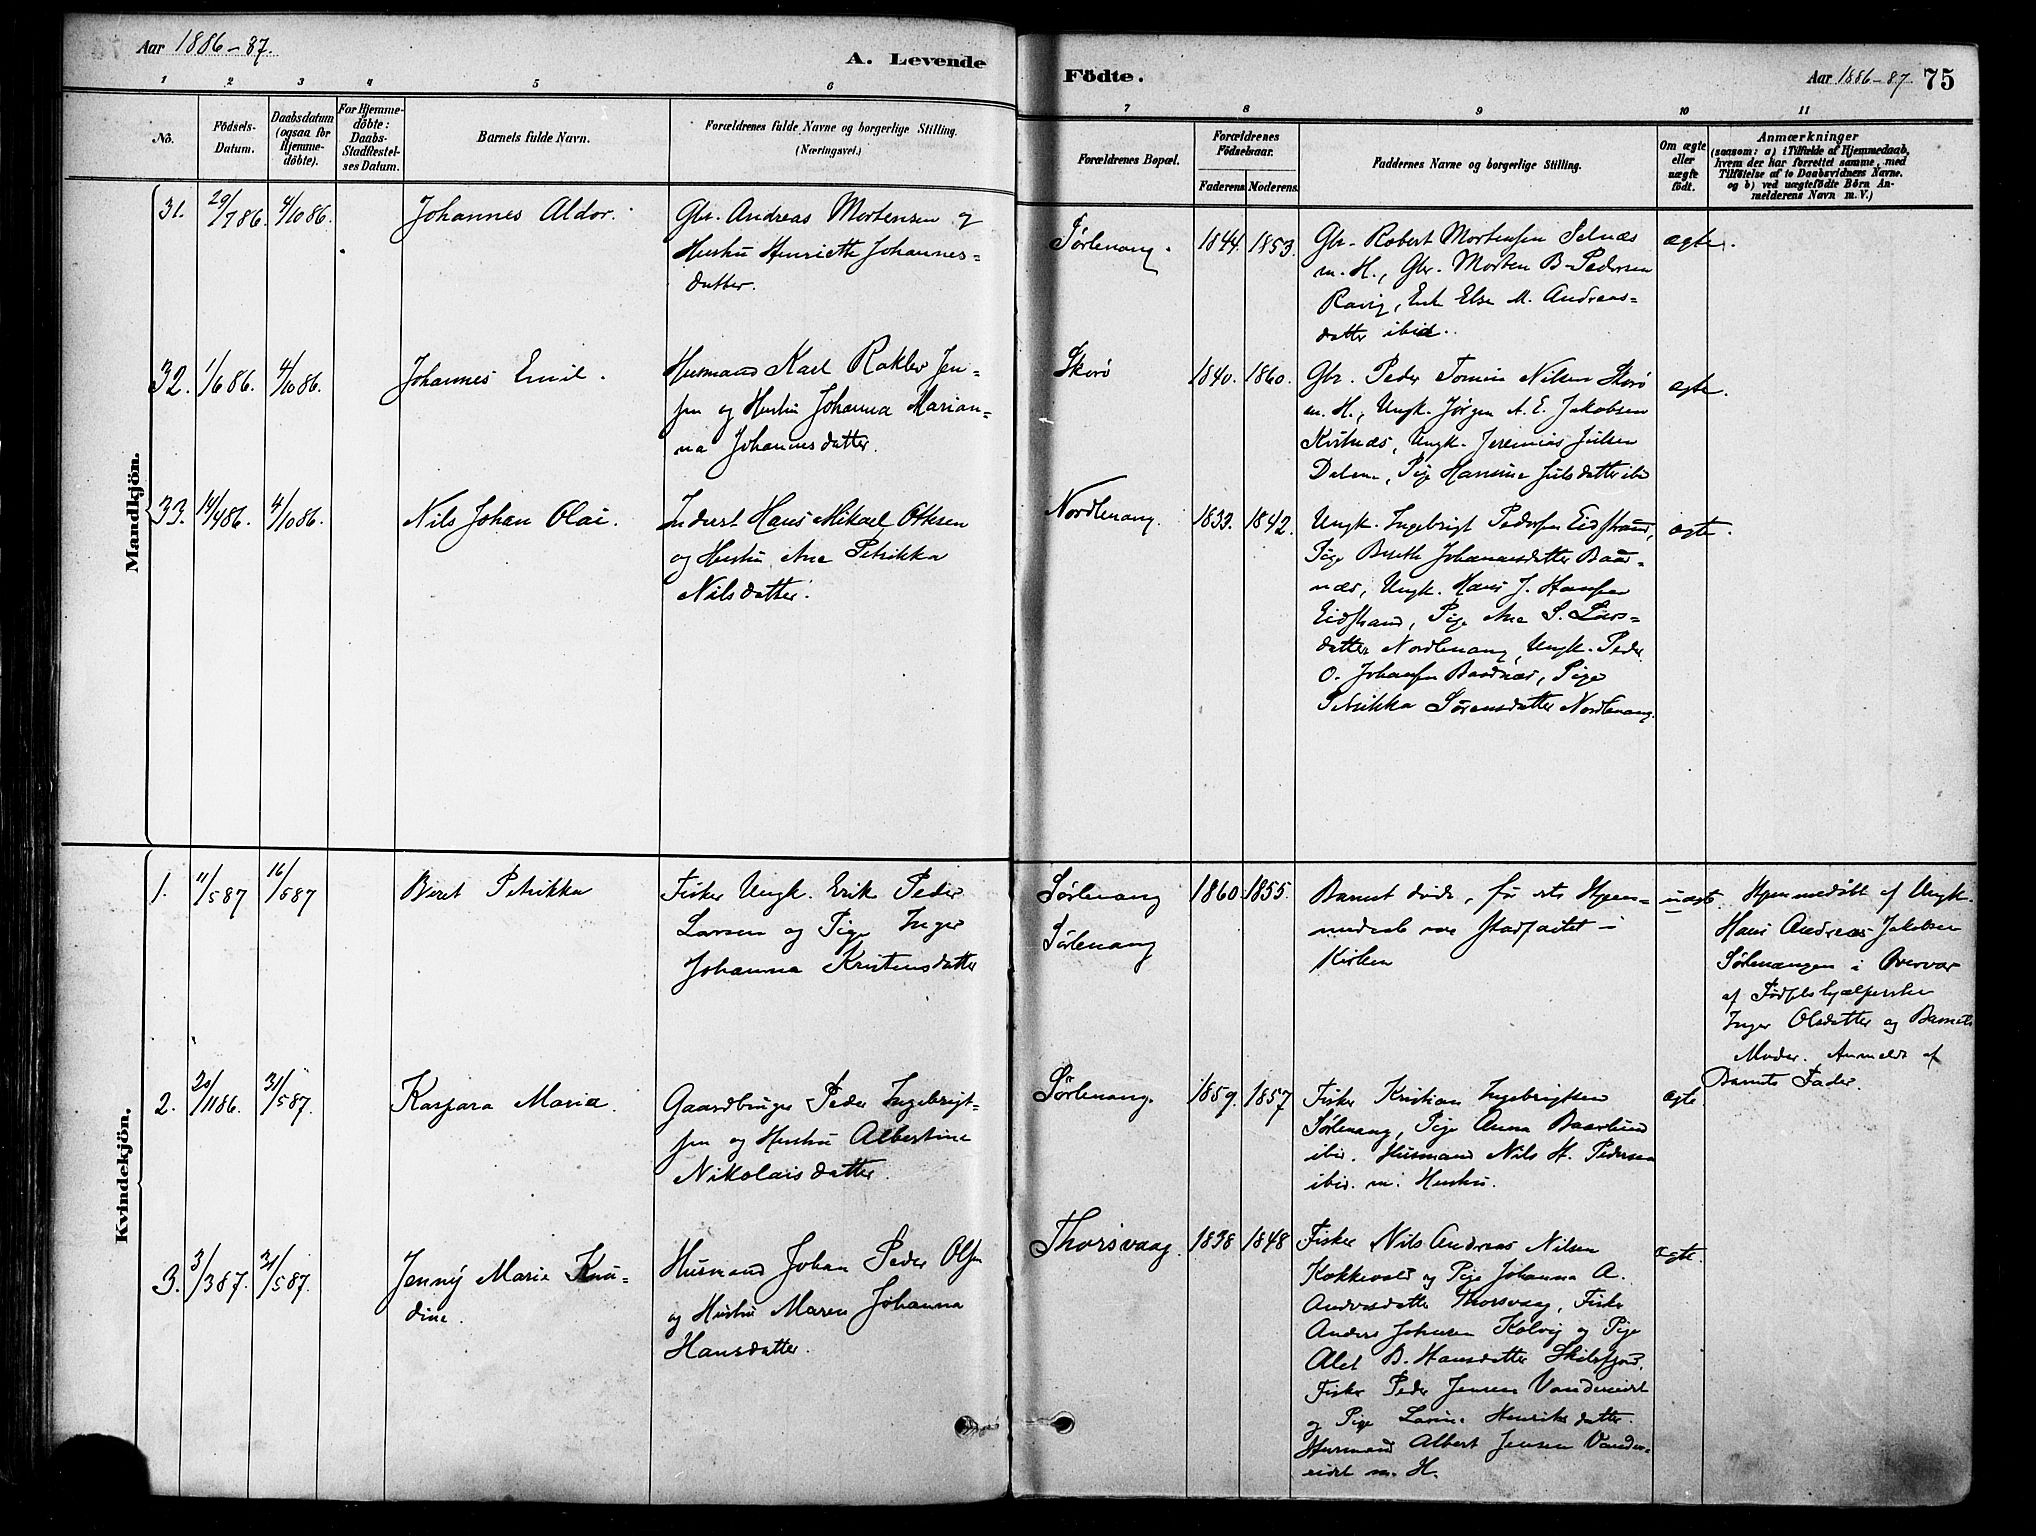 Aar 1886-87.
A. Levende Födte.
Aar 1886-87. 75
1 2 3 4 5 6 7 8 9 10 11
No.
Födsels-
Datum.
Daabsdatum
(ogsaa for
Hjemme-
döbte).
For Hjemme-
döbte:
Daabs-
Stadfæstel-
ses Datum.
Barnets fulde Navn.
Forældrenes fulde Navne og borgerlige Stilling.
(Næringsvei.)
Forældrenes Bopæl.
Forældrenes
Födselsaar.
Faderens. Moderens.
Faddernes Navne og borgerlige Stilling.
Om ægte
eller
uægte
födt.
Anmærkninger
(saasom: a) i Tilfælde af Hjemmedaab,
hvem der har forrettet samme, med
Tilföielse af to Daabsvidners Navne.
og b) ved uægtefödte Börn An-
melderens Navn m. V.)
Mandkjön.
31. 29/786. 4/1086.
Johannes Aldor.
Gbr. Andreas Mortensen og
Hustru Henriette Johannes-
datter.
Sørlenang.
1844. 1853.
Gbr. Robert Mortensen Selnæs
m. H., Gbr. Morten B. Pedersen
Ravig, Enk Else M. Andreas-
datter ibid.
ægte.
32. 1/686. 4/1086.
Johannes Emil.
Husmand Karl Rokles Jen-
sen og Hustru Johanna Marian-
na Johannesdatter.
Skorø
1840. 1860.
Gbr. Peder Tomin Nilsen Skorø
m. H., Ungk. Jørgen A. E. Jakobsen
Kvitnæs, Ungk. Jeremias Julsen
Dalen, Pige Hansine Julsdatter ibd
ægte.
33. 14/486. 4/1086.
Nils Johan Olai.
Inderst Hans Mikael Ottesen
og Hustru Ane Petrikka
Nilsdatter.
Nordlenang.
1833. 1842.
Ungk. Ingebrigt Pedersen Eidstrand,
Pige Berith Johannesdatter Baad-
næs, Ungk. Hans J. Hansen
Eidstrand, Pige Ane S. Lars-
datter Nordlenang, Ungk. Peder
O. Johansen Baadnæs, Pige
Petrikka Sørensdatter Nordlenang.
ægte.
Kvindekjön.
1. 11/587 16/587
Beret Petrikka
Fisker Ungk. Erik Peder
Larsen og Pige Inger
Johanna Kristensdatter
Sørlenang
Sørlenang
1860. 1855.
Barnet døde, før dets Hjem-
medaab var stadfæstet i
Kirken
uægte.
Hjemmedøbt af Ungk.
Hans Andreas Jakobsen
Sørlenangen i Overvær
af Fødselshjælpersken
Inger Olsdatter og Barnets
Moder. Anmeldt af
Barnets Fader.
2. 20/1186. 31/587.
Kaspara Maria.
Gaardbruger Peder Ingebrigt-
sen og Hustru Albertine
Nikolaisdatter.
Sørlenang.
1859. 1857
Fisker Kristian Ingebrigtsen
Sørlenang, Pige Anna Baarlund
ibid. Husmand Nils H. Pedersen
ibid. m. Hustru.
ægte
3. 3/387. 31/587.
Jenny Marie Knu-
dine.
Husmand Johan Peder Olsen
og Hustru Maren Johanna
Hansdatter.
Thorsvaag.
1838 1848
Fisker Nils Andreas Nilsen
Kokkevold og Pige Johanna A.
Andersdatter Thorsvaag, Fisker
Anders Johnsen Kalvig og Pige
Alet B. Hansdatter Skibsfjord.
Fisker Peder Jensen Vandereidet
og Pige Lavine Henriksdatter.
Husmand Albert Jensen Vander-
eidet m. H.
ægte.